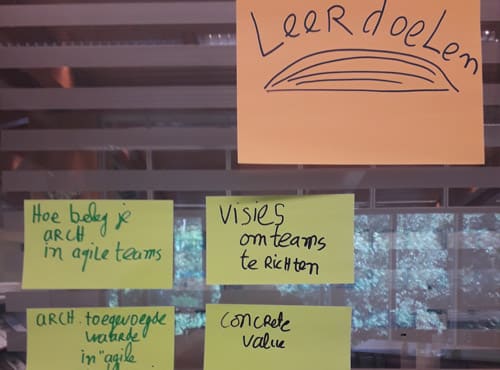 LEERdoeLen
Hoe beleg je
ARCH
in agile teams
VISIES
om teams
te RichTen
ARCH. toegevoegde
waarde
in "agile
concrete
value